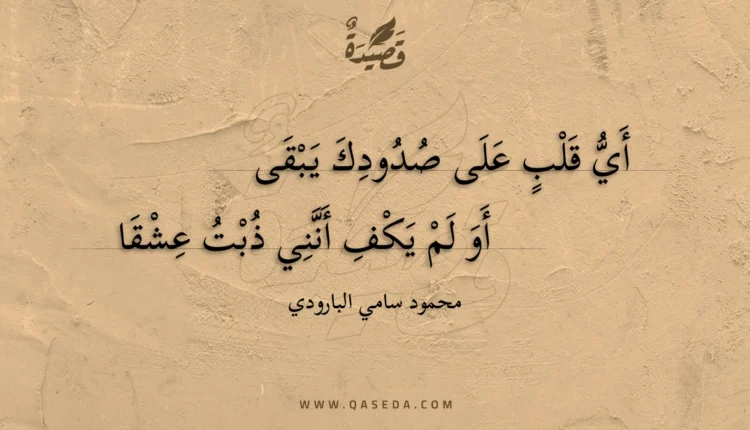 قَصِيدَةٌ
أَيُّ قَلْبٍ عَلَى صُدُودِكَ يَبْقَى
أَوَ لَمْ يَكْفِ أَنَّنِي ذُبْتُ عِشْقَا
محمود سامي البارودي
WWW.QASEDA.COM